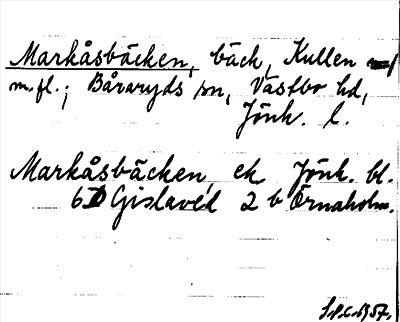 Markåsbäcken, bäck, Kullen
m.fl.; Båraryds sn, Västbo hd,
Jönk. l.
Markåsbäcken, ek Jönk. bl.
6D Gislaved 2 b Örnaholm.